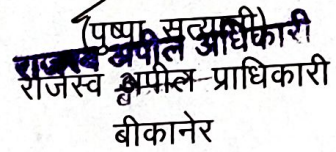 (पुष्पा सत्यानी)
राजस्व अपील अधिकारी
राजस्व अपील प्राधिकारी
बीकानेर